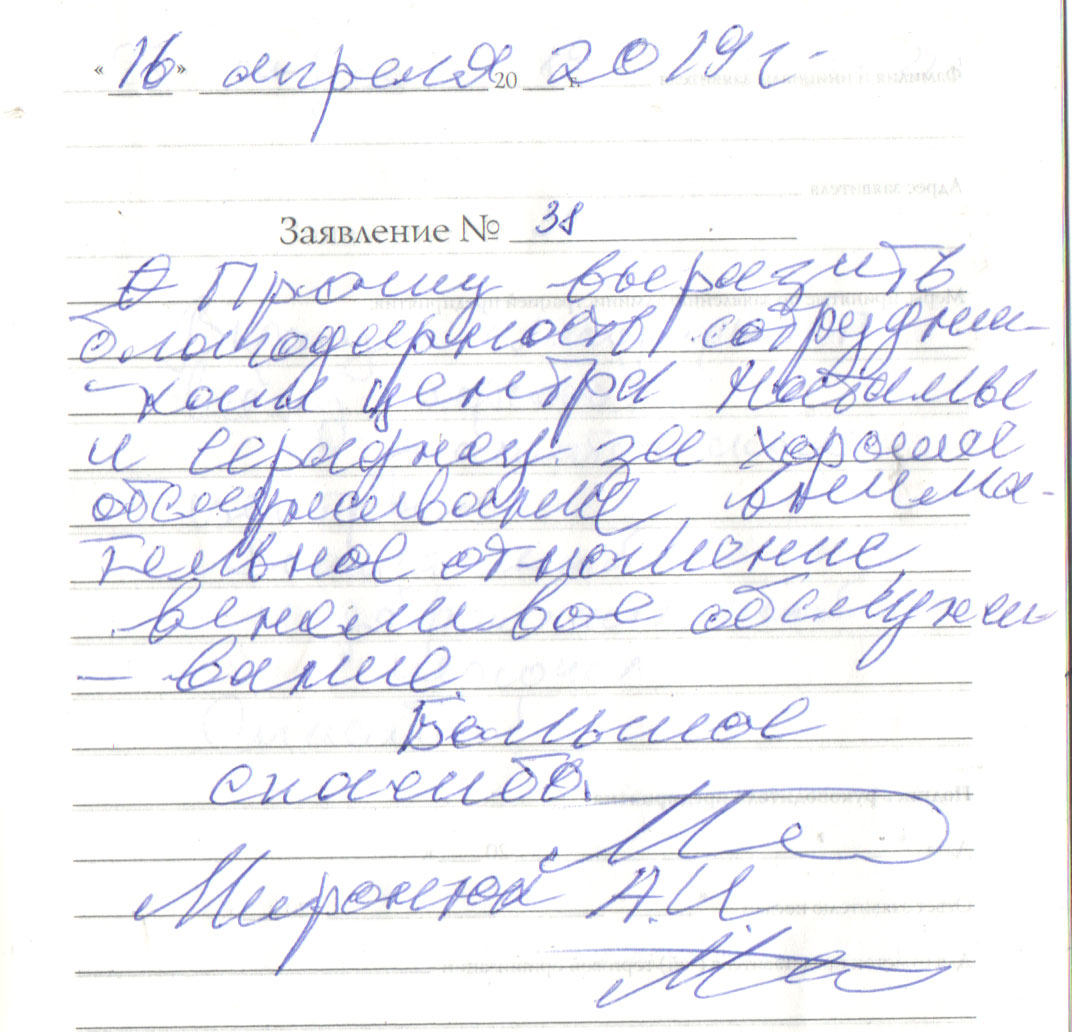 «16» апреля 20 2019 г.
Заявление № 38
Прошу выразить
благодарность сотрудни-
-кам центра Наталье
и за хорошее
обслуживание, внима-
тельное отношение,
вежливое обслужи
- вание.
Большое
спасибо.
А.И.